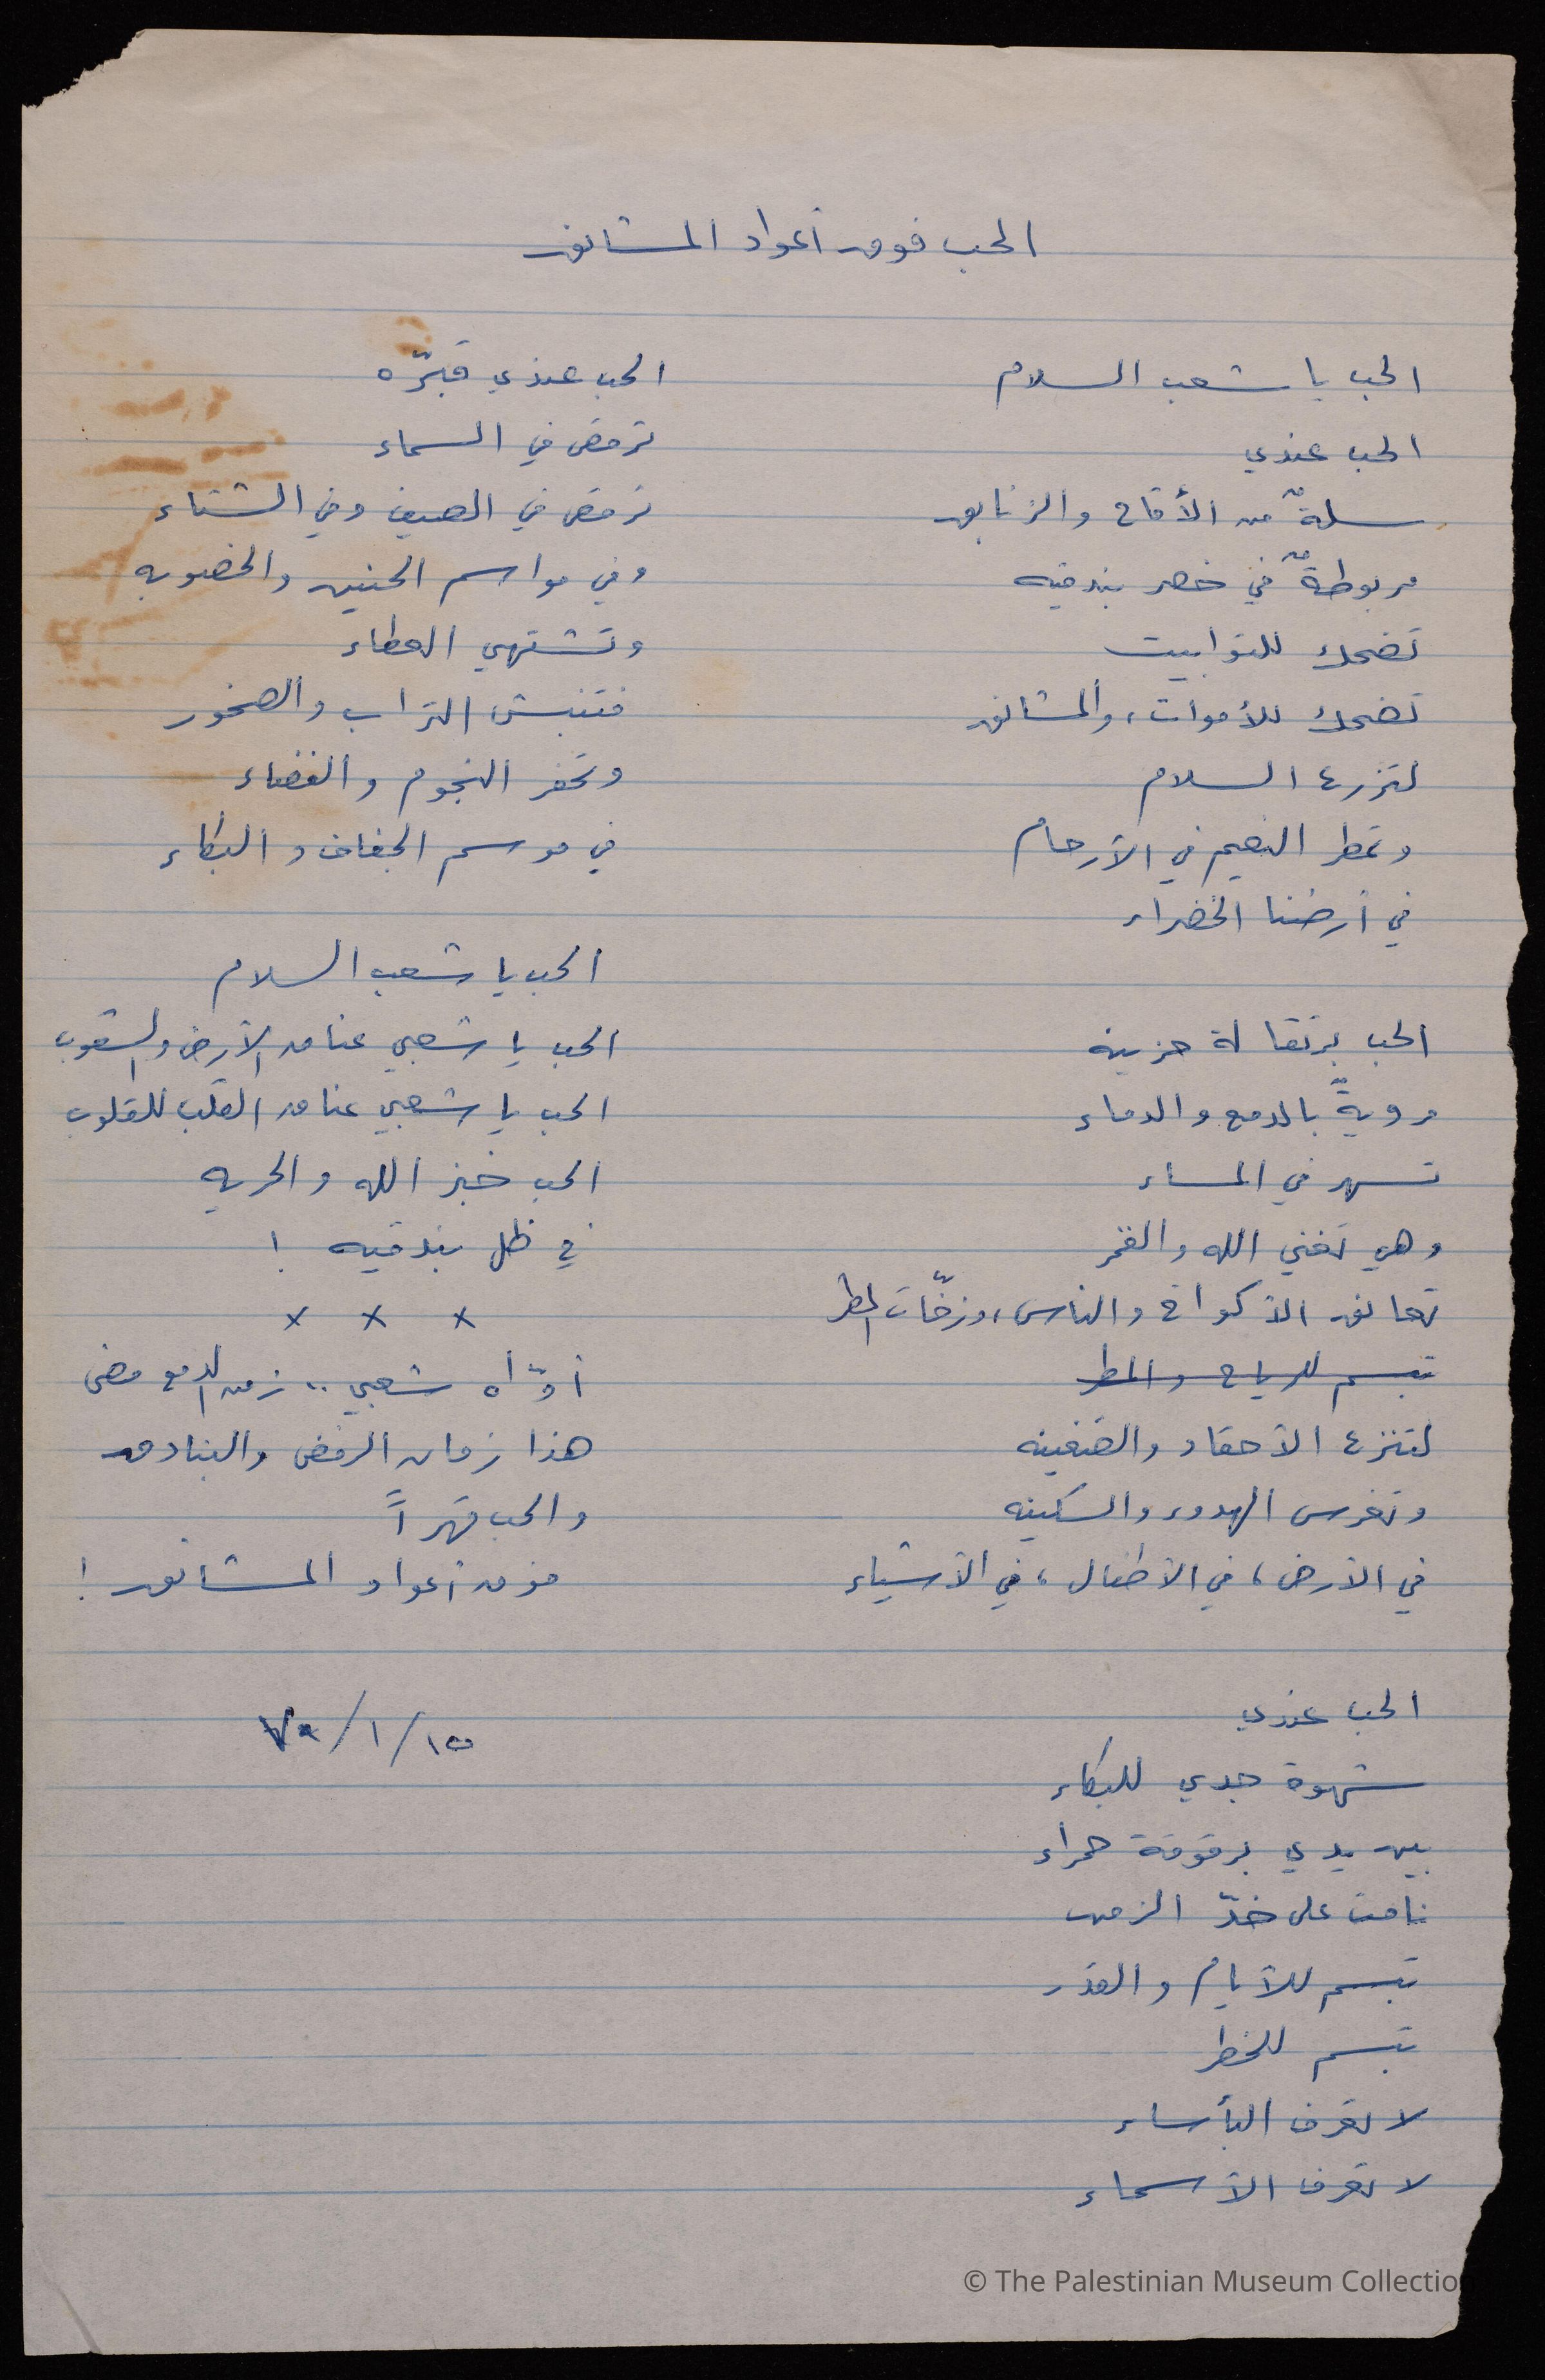 الحب فوق أعواد المشانق
الحب يا شعب السلام
الحب عندي
سلةٌ من الأقاح والزنابق
مربوطةٌ في خصر بندقيه
تضحك للتوابيت
تضحك للأموات، والمشانق
لتزرع السلام
وتمطر النعيم في الأرحام
في أرضنا الخضراء
الحب برتقالة حزينه
مرويةً بالدمع والدماء
تسهر في المساء
وهي تغني الله والقمر
تعانق الأكواخ والناس، وزخّات المطر
تبسم للرياح والمطر
لتنزع الأحقاد والضغينه
وتغرس الهدوء والسكينه
في الأرض، في الأطفال، في الأشياء
الحب عندي
شهوة جدي للبكاء
بين يدي برقوقة حمراء
نامت على خدّ الزمن
تبسم للأيام والقدر
تبسم للخطر
لا تعرف البأساء
لا تعرف الأسماء
الحب عندي قبّره
ترقص في السماء
ترقص في الصيف وفي الشتاء
وفي مواسم الحنين والخصوبه
وتشتهي العطاء
فتنبش التراب والصخور
وتحفر النجوم والفضاء
في موسم الجفاف والبكاء
الحب يا شعب السلام
الحب يا شعبي عناق الأرض والشعوب
الحب يا شعبي عناق القلب للقلوب
الحب خبز الله والحريه
في ظل بندقيه !
× × ×
أوّاه شعبي .. زمن الدمع مضى
هذا زمان الرفض والبنادق
والحب قهراً
فوق أعواد المشانق !
١٥/١/٧٥
© The Palestinian Museum Collectio